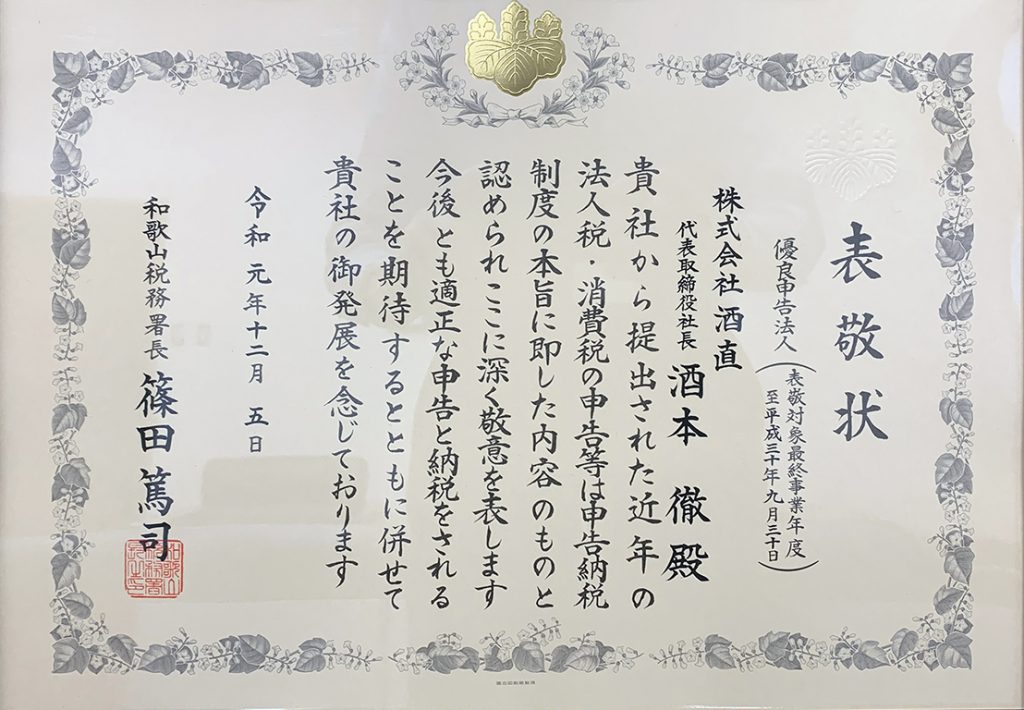 表敬状
優良申告法人
(表敬対象最終事業年度
至平成三十年九月三十日)
株式会社酒直
代表取締役社長 酒本 徹 殿
貴社から提出された近年の
法人税・消費税の申告等は申告納税
制度の本旨に即した内容のものと
認められここに深く敬意を表します
今後とも適正な申告と納税をされる
ことを期待するとともに併せて
貴社の御発展を念じております
令和元年十二月 五日
和歌山税務署長 篠田 篤司